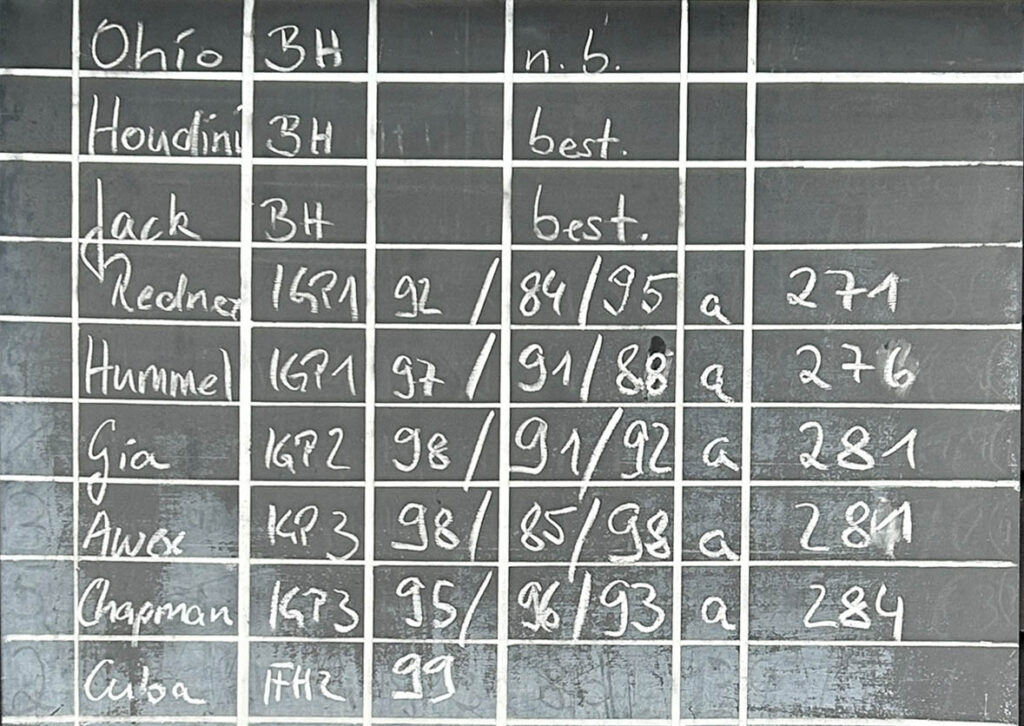 Ohio BH n.b.
Houdini BH best.
Jack BH best.
Redner IGP1 92 / 84 / 95 a 271
Hummel IGP1 97 / 91 / 88 a 276
Gia IGP2 98 / 91 / 92 a 281
Awex IGP3 98 / 85 / 98 a 281
Chapman IGP3 95 / 96 / 93 a 284
Cuba IFH2 99